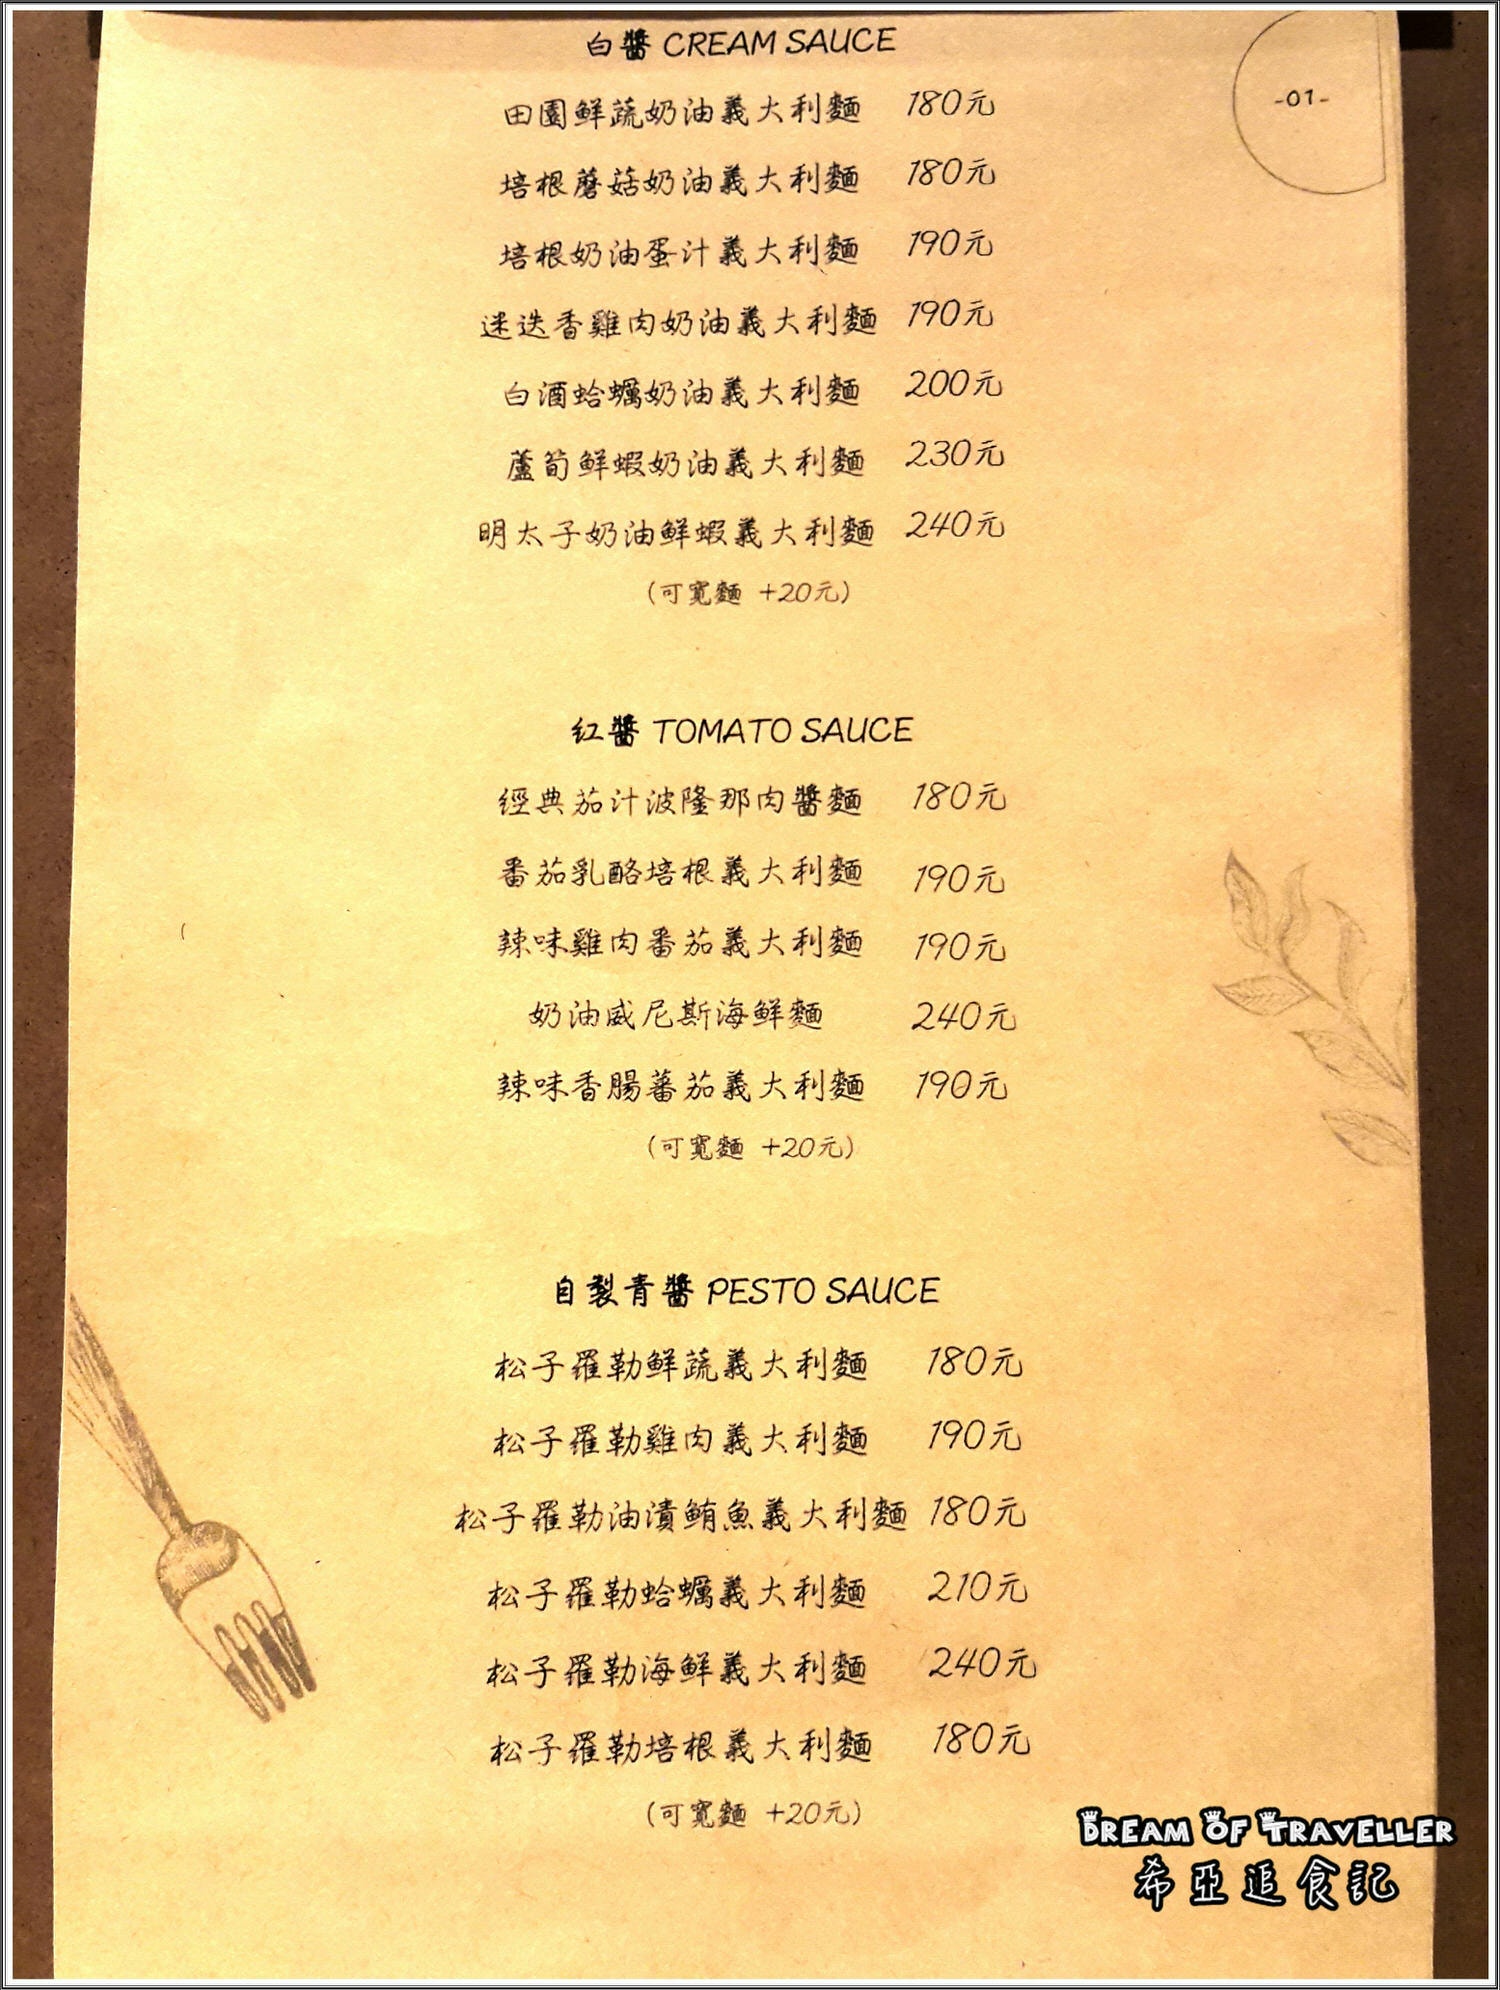 白醬 CREAM SAUCE
-01-
田園鮮蔬奶油義大利麵 180元
培根蘑菇奶油義大利麵 180元
培根奶油蛋汁義大利麵 190元
迷迭香雞肉奶油義大利麵 190元
白酒蛤蠣奶油義大利麵 200元
蘆筍鮮蝦奶油義大利麵 230元
明太子奶油鮮蝦義大利麵 240元
(可寬麵 +20元)
紅醬 TOMATO SAUCE
經典茄汁波隆那肉醬麵 180元
番茄乳酪培根義大利麵 190元
辣味雞肉番茄義大利麵 190元
奶油威尼斯海鮮麵 240元
辣味香腸蕃茄義大利麵 190元
(可寬麵 +20元)
自製青醬 PESTO SAUCE
松子羅勒鮮蔬義大利麵 180元
松子羅勒雞肉義大利麵 190元
松子羅勒油漬鮪魚義大利麵 180元
松子羅勒蛤蠣義大利麵 210元
松子羅勒海鮮義大利麵 240元
松子羅勒培根義大利麵 180元
(可寬麵 +20元)
DREAM OF TRAVELLER
希亞追食記